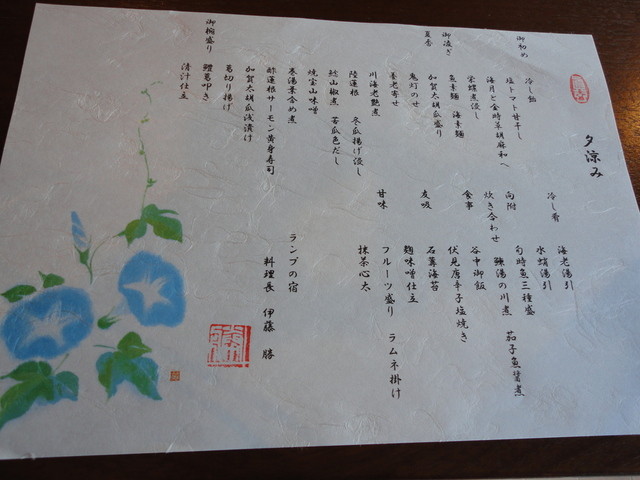 夕涼み
御初め 冷し飴
塩トマト甘干し
海月と金時草胡麻和へ
栄螺煮優し
御凌ぎ 魚素麺 海素麺
夏香 加賀太胡瓜盛り
鬼灯のせ
養老寄せ
川海老艶煮
陸蓮根 冬瓜揚げ優し
鱧山椒煮 苦瓜色だし
焼宝山味噌
巻湯葉含め煮
酢蓮根サーモン黄身寿司
加賀太胡瓜浅漬け
葛切り揚げ
御椀盛り 鱧葛叩き
清汁仕立
冷し肴 海老湯引
水蛸湯引
向附 旬時魚三種盛
炊き合わせ 鰊湯の川煮 茄子魚醤煮
食事 谷中御飯
伏見唐辛子塩焼き
友吸 石蓴海苔
麹味噌仕立
甘味 フルーツ盛り ラムネ掛け
抹茶心太
ランプの宿
料理長 伊藤 勝